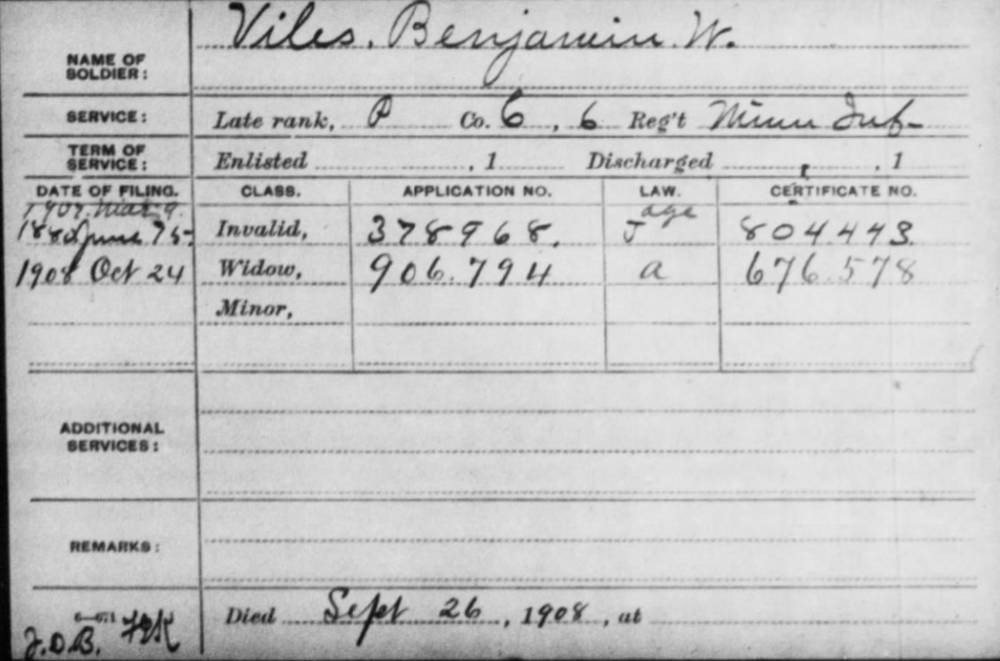 Viles, Benjamin W.
NAME OF
SOLDIER:
SERVICE: Late rank, P Co. C, 6 Reg't Minn Inf-
TERM OF
SERVICE: Enlisted , 1 Discharged , 1
DATE OF FILING. CLASS. APPLICATION NO. LAW. CERTIFICATE NO.
1907, Mar. 9. age
1880 June 75 Invalid, 378968. J 804.443.
1908 Oct 24 Widow, 906.794 a 676.578
Minor,
ADDITIONAL
SERVICES:
REMARKS:
Died Sept 26, 1908, at
J.O.B.